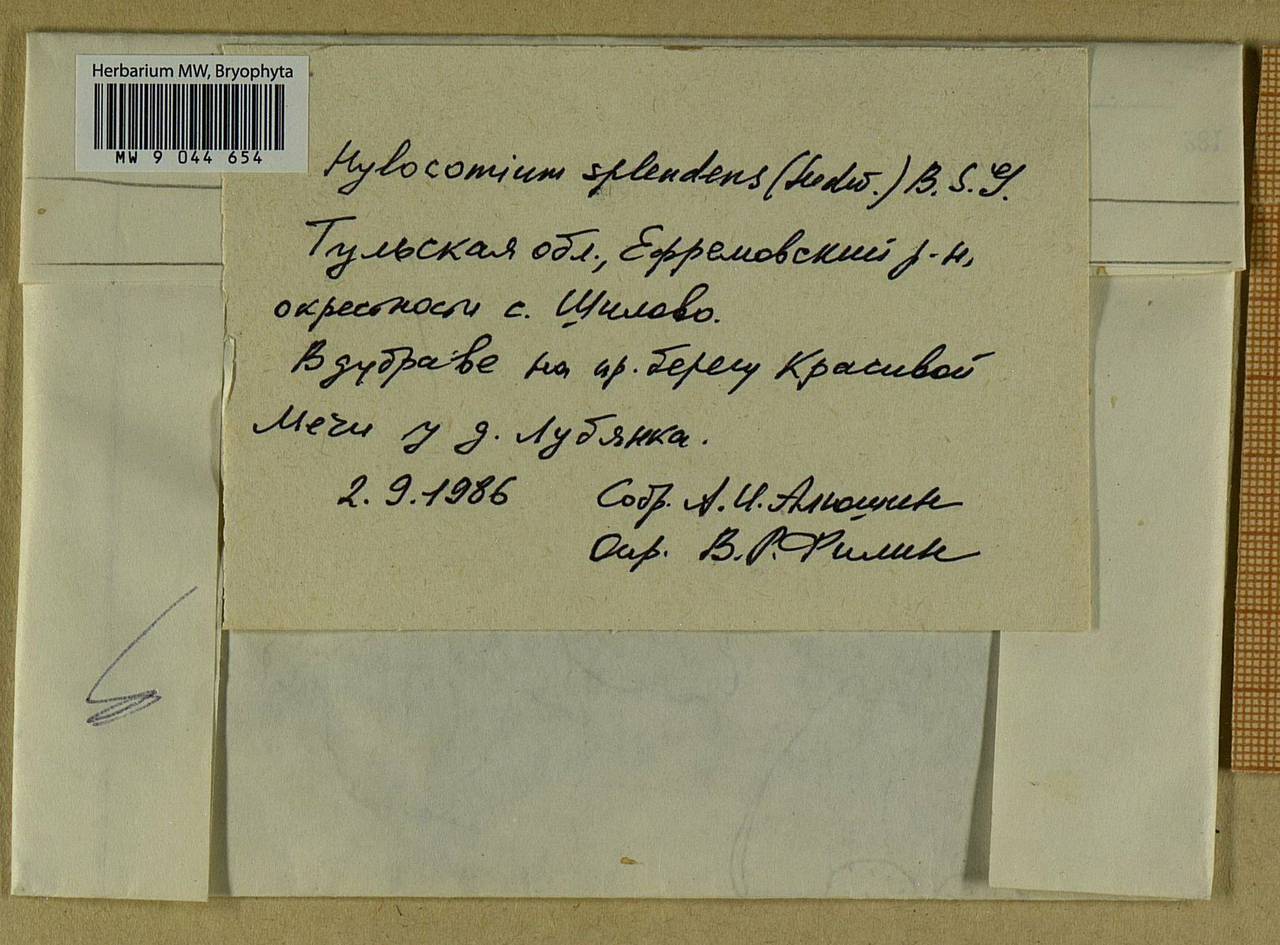 Herbarium MW, Bryophyta
MW 9 044 654
Hylocomium splendens (Hedw.) B.S.G.
Тульская обл., Ефремовский р-н,
окрестности с. Шилово.
В дубраве на пр. берегу Красивой
Мечи у д. Лубянка.
2.9.1986 Собр. А.И. Алюшин
Опр. В.Р. Филин